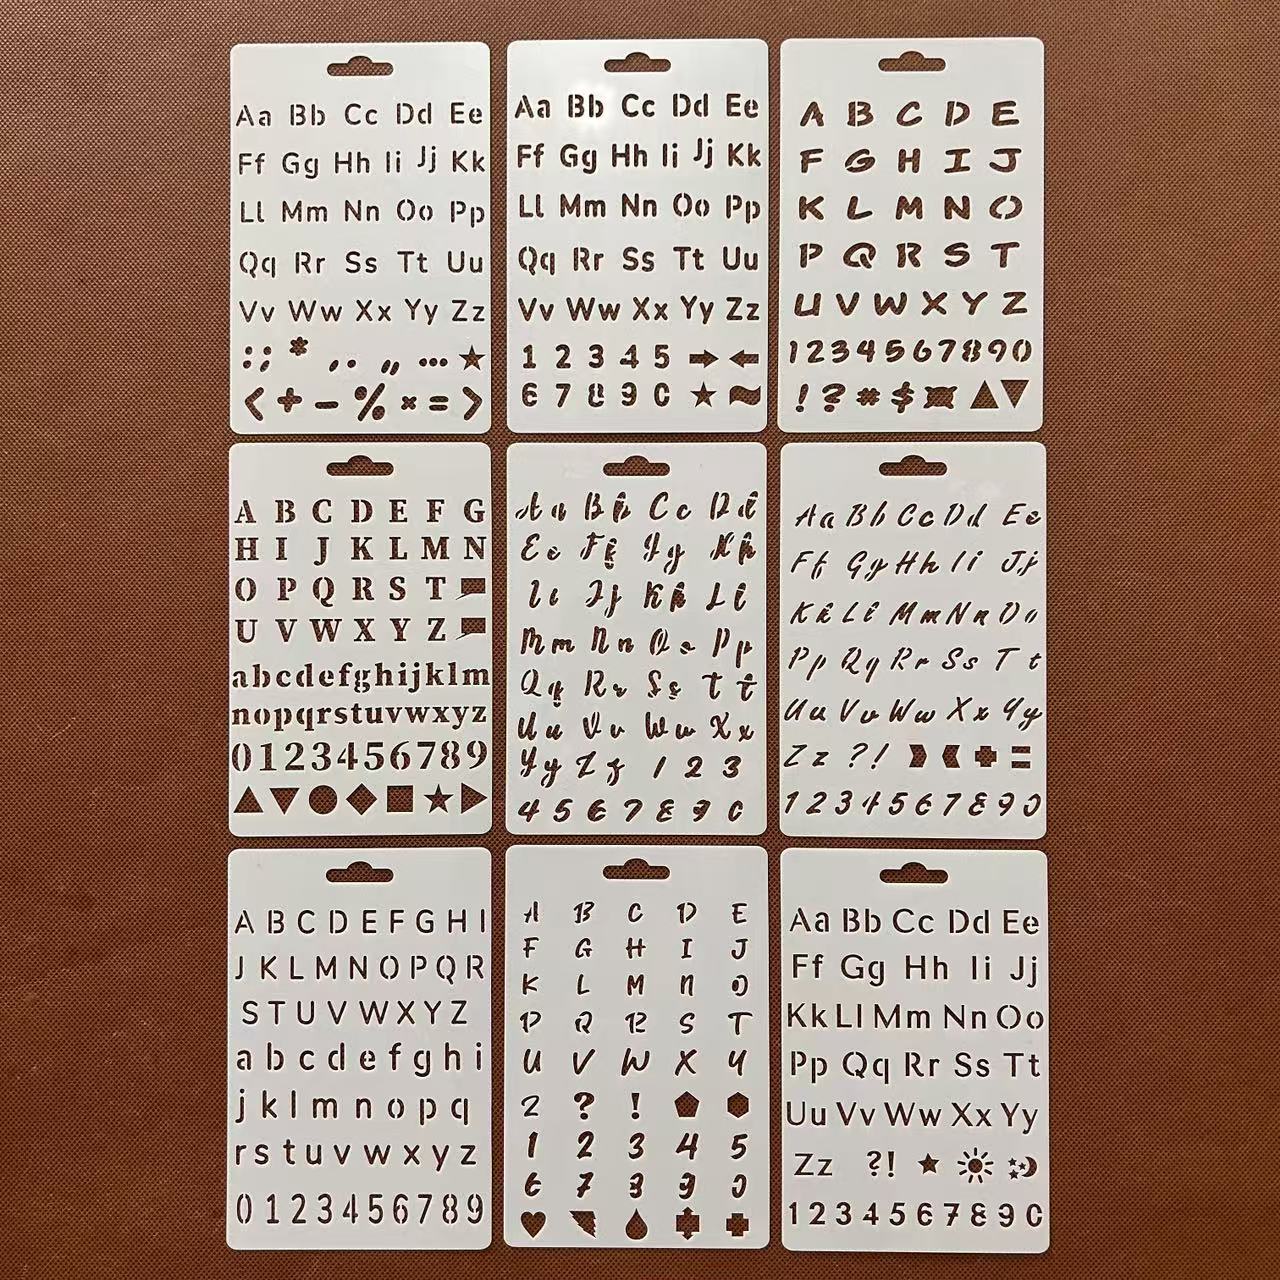 Aa Bb Cc Dd Ee
Ff Gg Hh Ii Jj Kk
Ll Mm Nn Oo Pp
Qq Rr Ss Tt Uu
Vv Ww Xx Yy Zz
: ; * , . „ ... ★
< + - % × = >
Aa Bb Cc Dd Ee
Ff Gg Hh Ii Jj Kk
Ll Mm Nn Oo Pp
Qq Rr Ss Tt Uu
Vv Ww Xx Yy Zz
1 2 3 4 5 → ←
6 7 8 9 0 ★
A B C D E
F G H I J
K L M N O
P Q R S T
U V W X Y Z
1234567890
! ? # $ ¤ ▲▼
A B C D E F G
H I J K L M N
O P Q R S T
U V W X Y Z
abcdefghijklm
nopqrstuvwxyz
0123456789
▲▼●◆■★▶
Aa Bb Cc Dd
Ee Ff Gg Hh
Ii Jj Kk Ll
Mm Nn Oo Pp
Qq Rr Ss Tt
Uu Vv Ww Xx
Yy Zz 1 2 3
4 5 6 7 8 9 0
Aa Bb Cc Dd Ee
Ff Gg Hh Ii Jj
Kk Ll Mm Nn Oo
Pp Qq Rr Ss Tt
Uu Vv Ww Xx Yy
Zz ?! + =
1 2 3 4 5 6 7 8 9 0
A B C D E F G H I
J K L M N O P Q R
S T U V W X Y Z
a b c d e f g h i
j k l m n o p q
r s t u v w x y z
0 1 2 3 4 5 6 7 8 9
A B C D E
F G H I J
K L M N O
P Q R S T
U V W X Y
Z ? !
1 2 3 4 5
6 7 8 9 0
Aa Bb Cc Dd Ee
Ff Gg Hh Ii Jj
Kk Ll Mm Nn Oo
Pp Qq Rr Ss Tt
Uu Vv Ww Xx Yy
Zz ?! ★
1 2 3 4 5 6 7 8 9 0